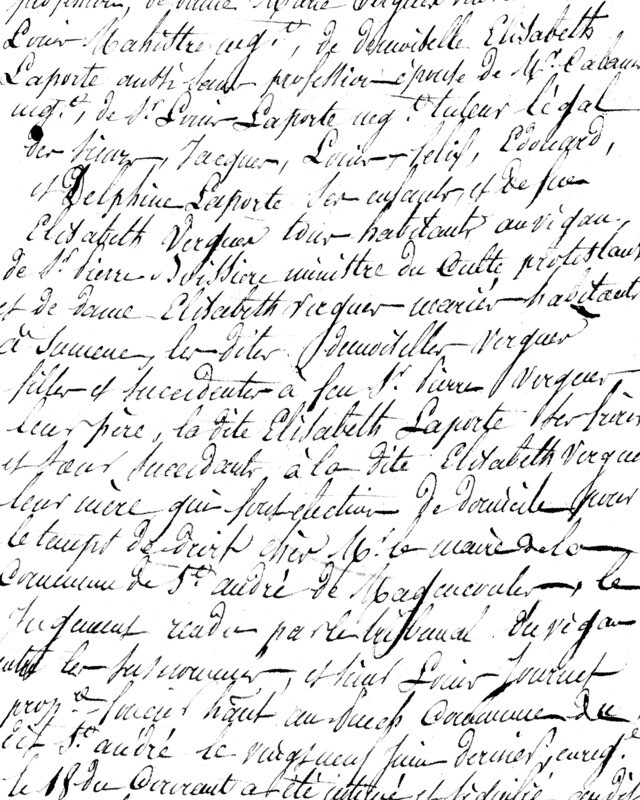 profession, de dame Marie Verguer
Louis Mahistre neg.t, de demoiselle Elisabeth
Laporte aussi sans profession épouse de Mr. Cabane
neg.t, de Sr. Louis Laporte neg.t tuteur légal
des sieurs, Jacques, Louis, felix, Edouard,
et Delphine Laporte ses enfants, et de feue
Elisabeth Verguer tous habitants au vigan,
de Sr. Pierre Boissiere ministre du Culte protestant
et de dame Elisabeth Verguer mariés habitants
à Sumene, les dites demoiselles Verguer
filles et succedentes à feu Sr. Pierre Verguer
leur père, la dite Elisabeth Laporte ses frères
et sœur succedants à la dite Elisabeth Verguer
leur mère qui font election de domicile pour
le temps de droit chès Mr. le maire de la
Commune de St. andré de Magencoules, le
Jugement rendu par le tribunal du vigan
entre les susnommés, et sieur Louis Journet
prop.re foncier habt. au Commune du
dit St. andré le vingt neuf Juin dernier, enreg.é
le 18 du Courant a été intimé et signifié au dit